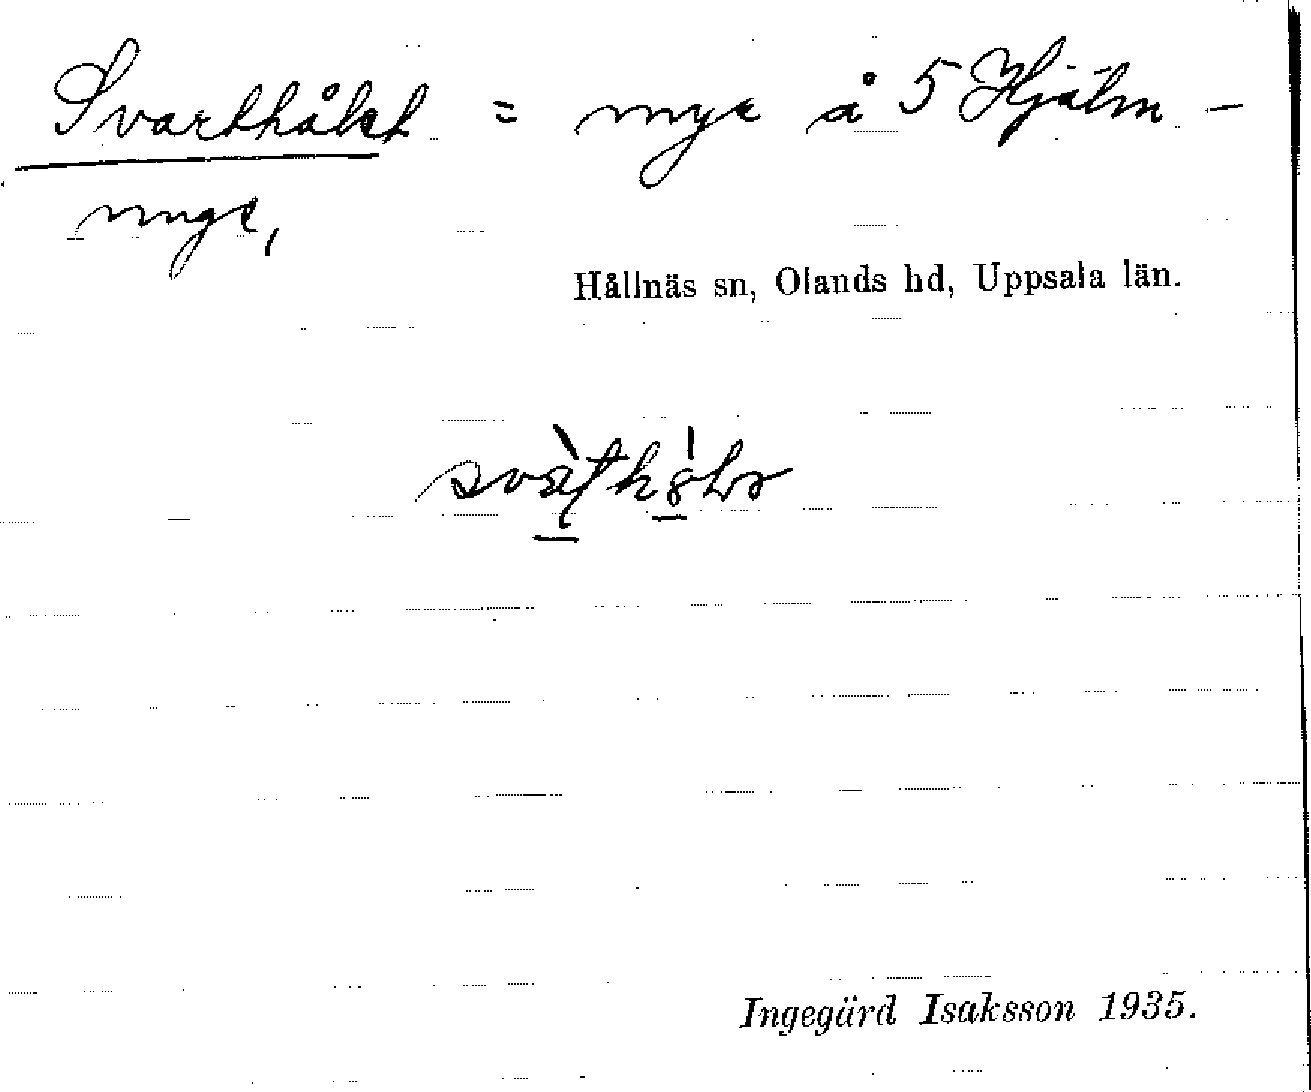 Svarthålet = myr å 5 Hjälm-
myr,
Hållnäs sn, Olands hd, Uppsala län.
Ingegärd Isaksson 1935.